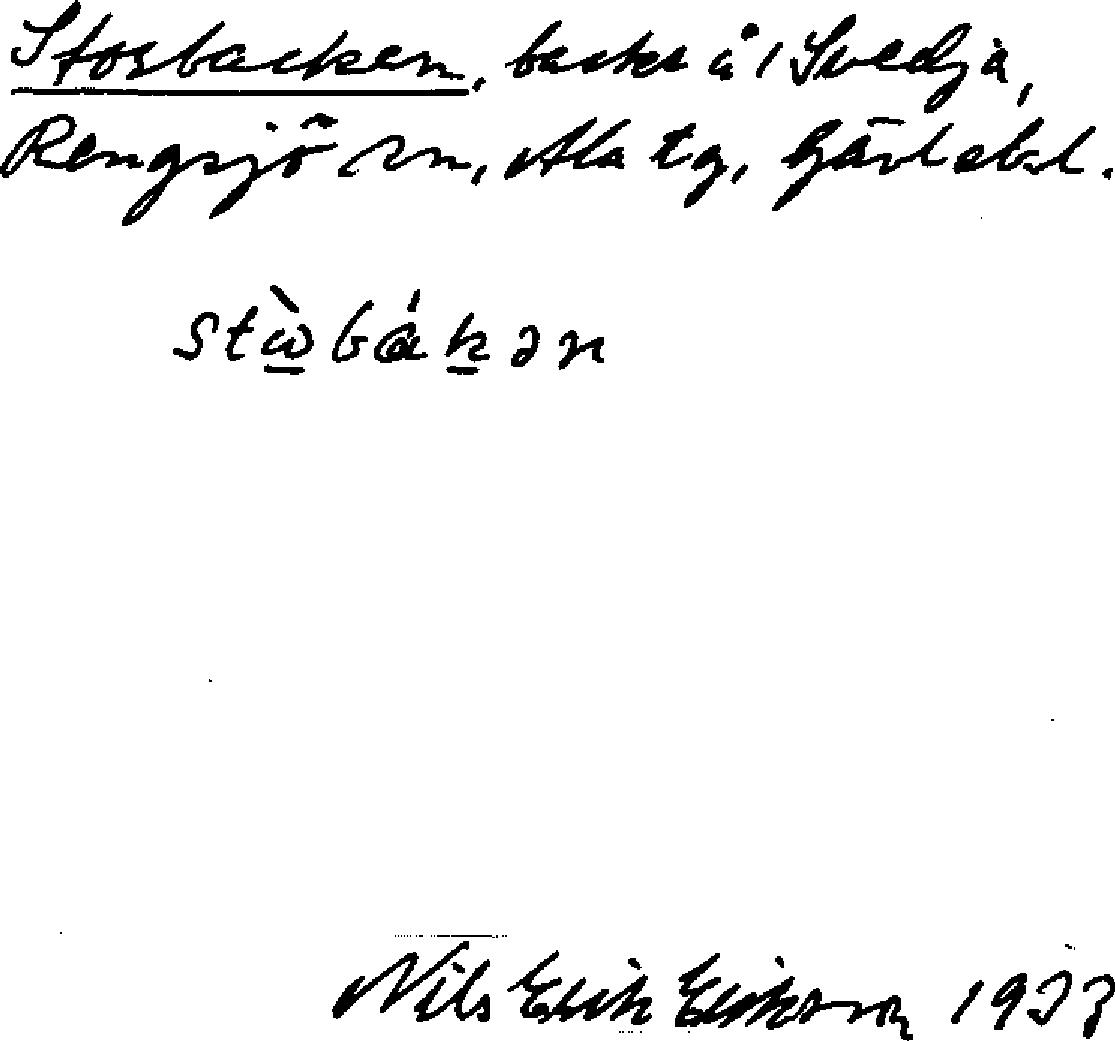 Storbacken, backe å 1 Svedja,
Rengsjö sn, Ala tg, Gävlebl.
stὼ̱bák̠ən
Nils Erik Erikson 1933